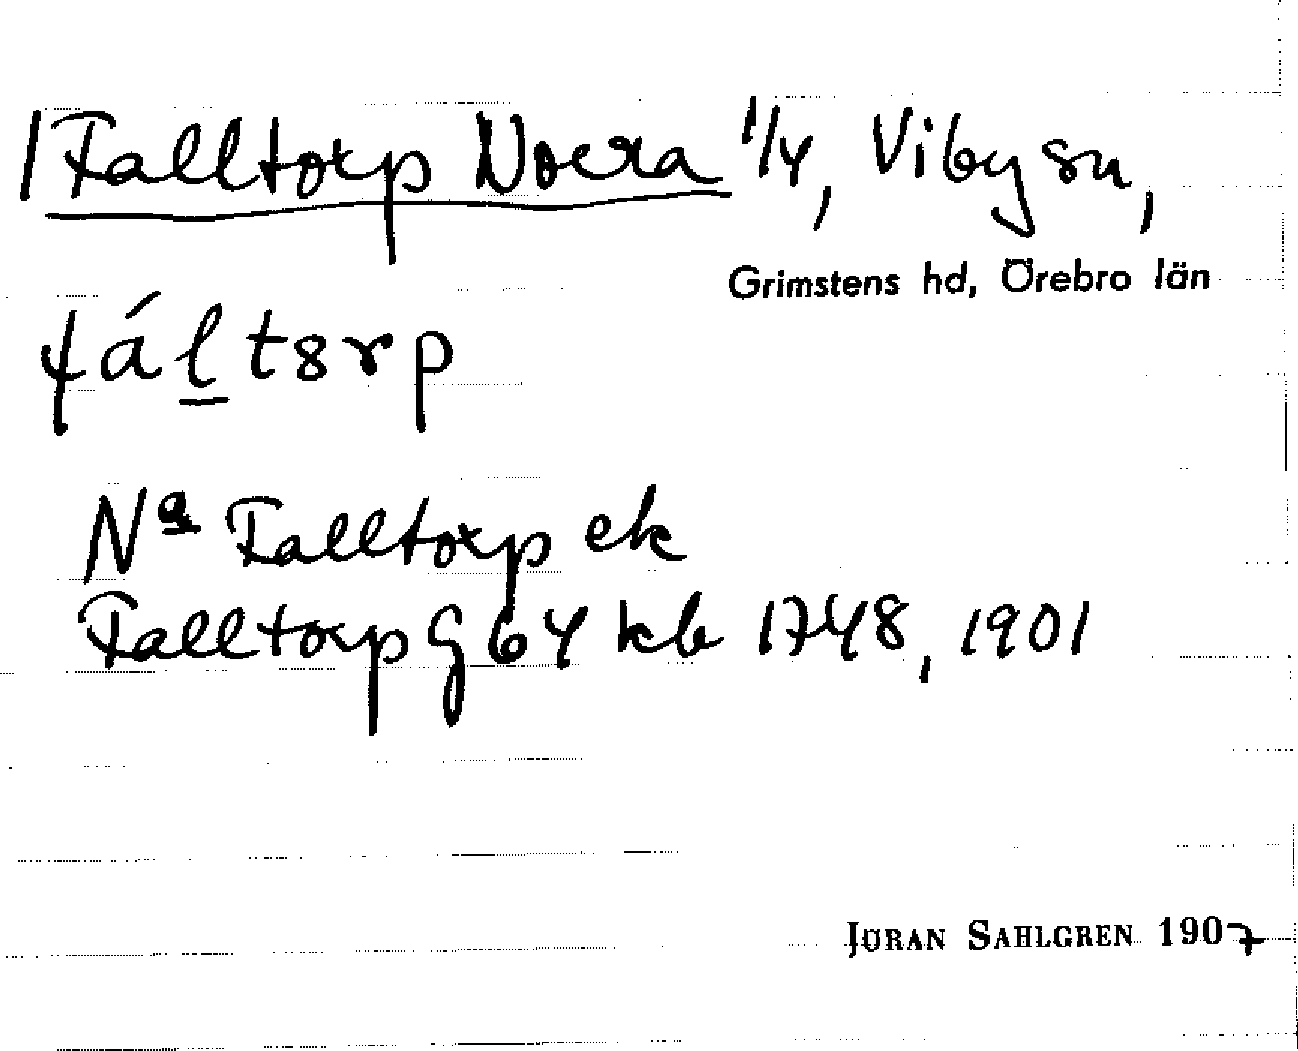 Falltorp Norra 1/4, Viby sn,
Grimstens hd, Örebro län
fáltorp
Na Falltorp ek
Falltorp G 64 kb 1748, 1901
JÖRAN SAHLGREN 1907